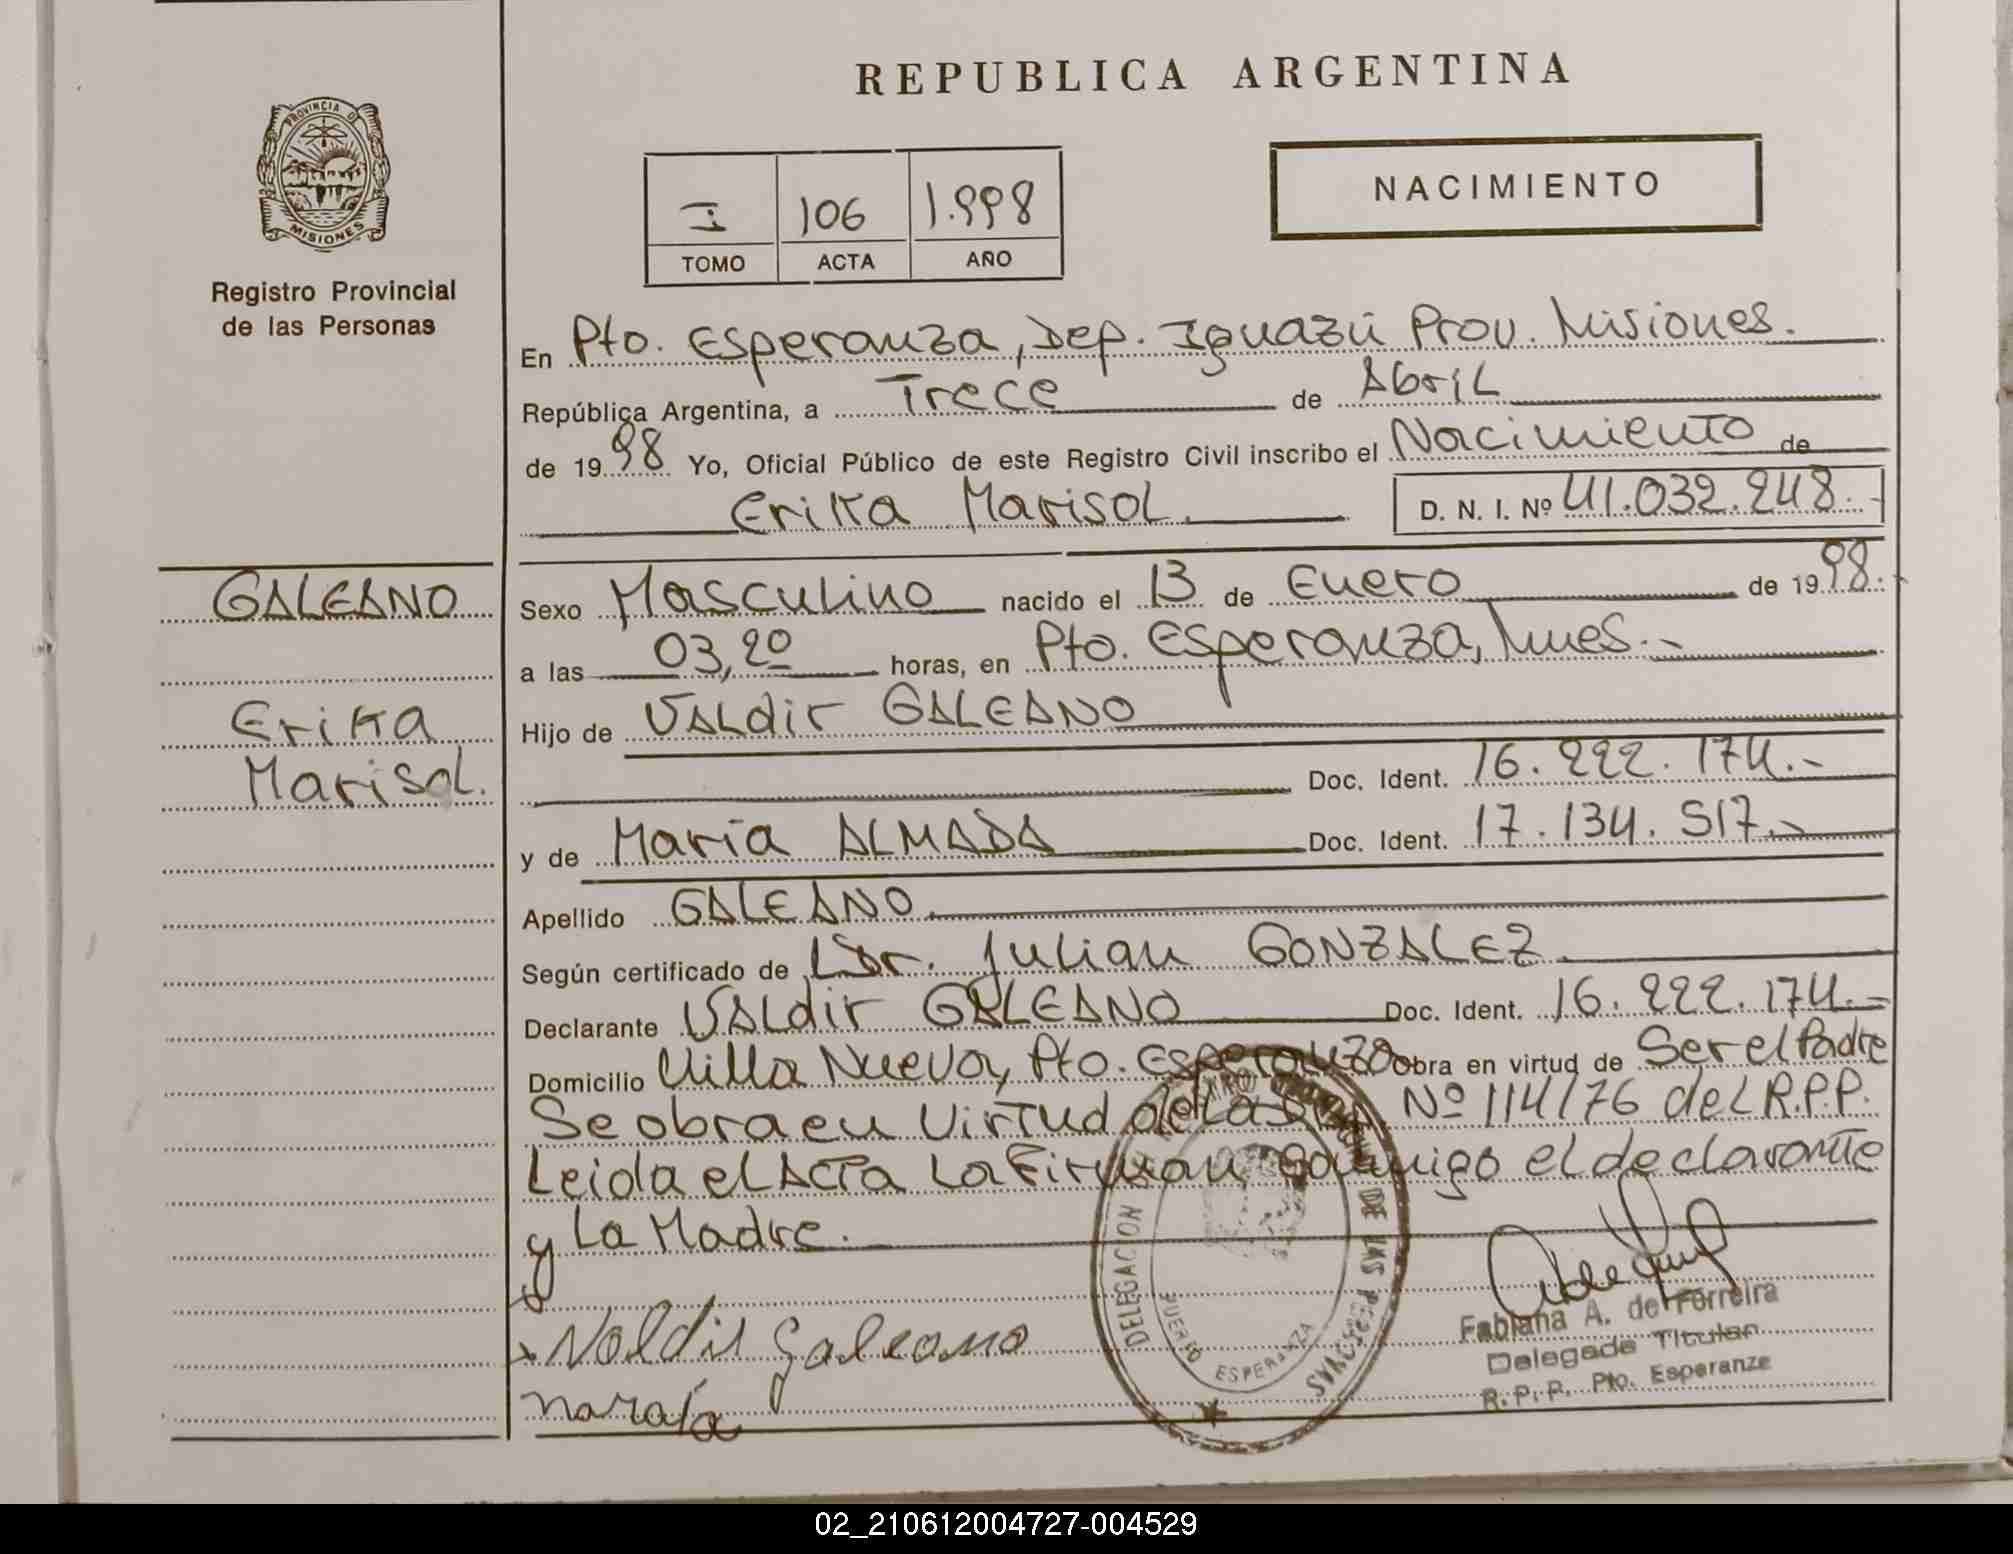 REPUBLICA ARGENTINA
PROVINCIA DE
MISIONES
Registro Provincial
de las Personas
I 106 1.998
TOMO ACTA AÑO
NACIMIENTO
En Pto. Esperanza, Dep. Iguazú Prov. Misiones.
República Argentina, a Trece de Abril
de 1998 Yo, Oficial Público de este Registro Civil inscribo el Nacimiento de
Erika Marisol. D. N. I. Nº 41.032.248.-
GALEANO
Erika
Marisol.
Sexo Masculino nacido el 13 de Enero de 1998.
a las 03,20 horas, en Pto. Esperanza, Mnes.-
Hijo de VALdir GALEANO
Doc. Ident. 16.222.174.-
y de María ALMADA Doc. Ident. 17.134.517.-
Apellido GALEANO
Según certificado de Dr. Julian GONZALEZ.
Declarante VALdir GALEANO Doc. Ident. 16.222.174.-
Domicilio Villa Nueva, Pto. Esperanza obra en virtud de Ser el Padre
Se obra en Virtud de La Nº 114/76 deL R.P.P.
Leida el Acta La Firman conmigo el declarante
y La Madre.
Valdir Galeano
maraia
DELEGACION DE LAS PERSONAS
PUERTO ESPERANZA
Fabiana A. de Ferreira
Delegada Titular
R. P. P. Pto. Esperanza
02_210612004727-004529